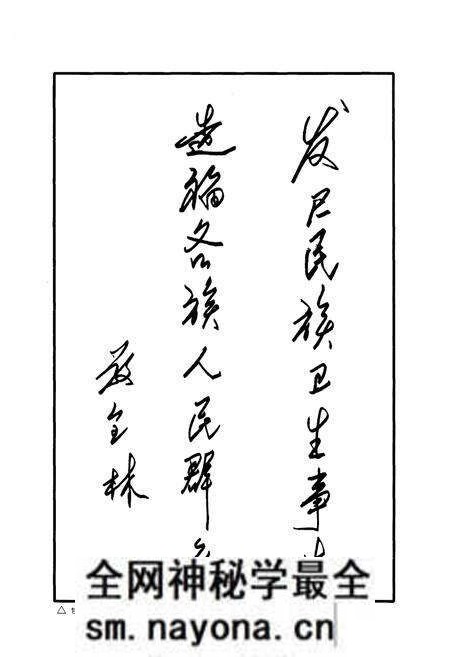 发展民族卫生事
造福各族人民群
全林
全网神秘学最全
sm.nayona.cn